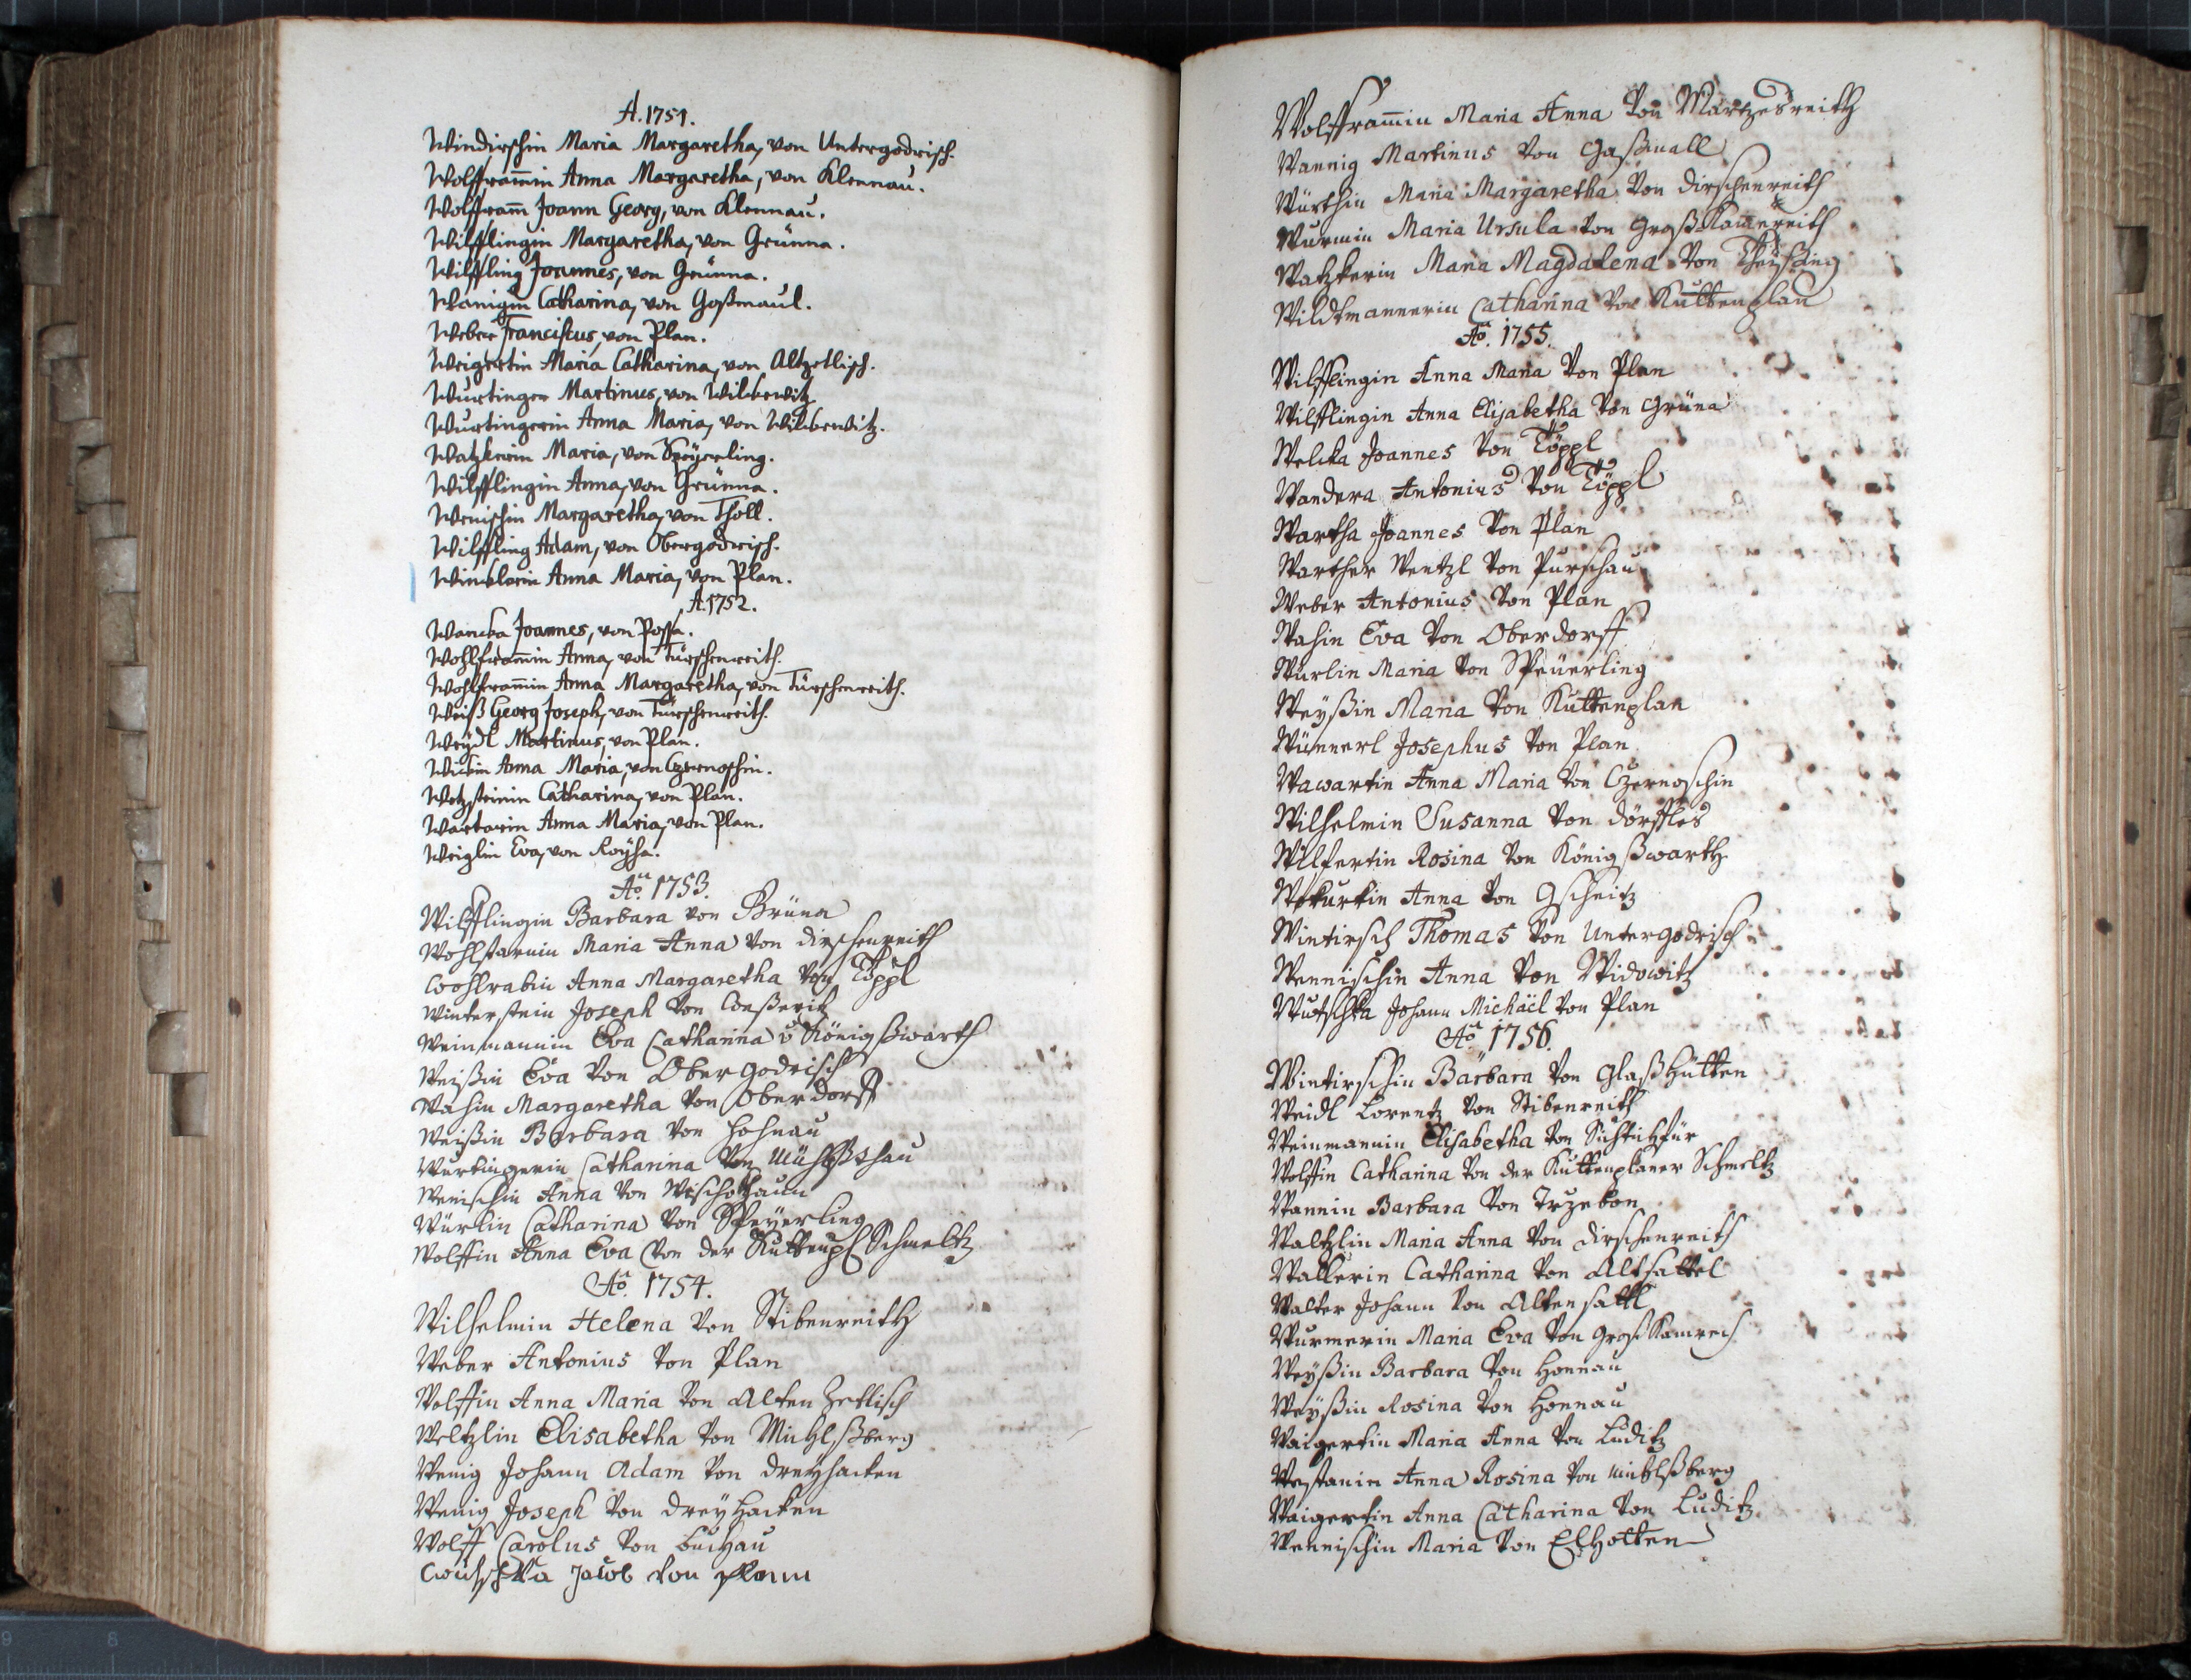 A. 1751.
Windirschin Maria Margaretha, von Untergodrisch.
Wolfframin Anna Margaretha, von Klennau.
Wolffram Joann Georg, von Klennau.
Wilfflingin Margaretha, von Grünna.
Wilffling Joannes, von Grünna.
Wanigin Catharina, von Goßmaul.
Weber Franciscus, von Plan.
Weigertin Maria Catharina, von Altzetlisch.
Wurtinger Martinus, von Wilkowitz
Wurtingerin Anna Maria, von Wilkowitz.
Watzkerin Maria, von Speyerling.
Wilfflingin Anna, von Grünna.
Wenischin Margaretha, von Tholl.
Wilffling Adam, von Obergodrisch.
Wincklerin Anna Maria, von Plan.
A. 1752.
Wancka Joannes, von
Wohlframin Anna, von Türschenreith.
Wohlframin Anna Margaretha, von Türschenreith.
Weiß Georg Joseph, von Türschenreith.
Weydl Martinus, von Plan.
Anna Maria, von Czernoschin.
Wetzsteinin Catharina, von Plan.
Wartarin Anna Maria, von Plan.
Weiglin Eva, von
Ao. 1753.
Wilfflingin Barbara von Grüna
Maria Anna Von dirschenreith
Wohlrabin Anna Margaretha Von Töppl
Winterstein Joseph Von Weßeritz
Weinmannin Eva Catharina v Königßwarth
Weißin Eva Von Obergodrisch
Wahin Margaretha Von Oberdorff
Weißin Barbara Von Hohnau
Wurtingerin Catharina Von
Wenischin Anna Von
Würlin Catharina Von Speyerling
Wolffin Anna Eva Von der Kuttenpl Schmeltz
Ao. 1754.
Wilhelmin Helena Von Stibenreith
Weber Antonius Von Plan
Wolffin Anna Maria Von Alten Zetlisch
Weltzlin Elisabetha Von Michlßberg
Wenig Johann Adam Von Dreyhacken
Wenig Joseph Von Dreyhacken
Wolff Carolus Von Buchau
Wutschka Jacob Von Plann
Wolfframin Maria Anna Von
Wannig Martinus Von Goßmall
Würthin Maria Margaretha Von dirschenreith
Wurmin Maria Ursula Von Groß Kamereith
Watzkerin Maria Magdalena Von Theyßing
Wildtmannerin Catharina Von Kuttenplan
Ao. 1755.
Wilfflingin Anna Maria Von Plan
Wilfflingin Anna Elisabetha Von Grüna
Welcka Joannes Von Töppl
Wandera Antonius Von Töppl
Wartha Joannes Von Plan
Warther Wentzl Von Purschau
Weber Antonius Von Plan
Wahin Eva Von Oberdorff
Würlin Maria Von Speüerling
Weyßin Maria Von Kuttenplan
Wünnerl Josephus Von Plan
Wawartin Anna Maria Von Czernoschin
Wilhelmin Susanna Von dörffles
Wilfertin Rosina Von Königßwarth
Anna Von Gscheitz
Wintirsch Thomas Von Untergodrisch
Wennischin Anna Von Widowitz
Wutschka Johann Michäel Von Plan
Ao. 1756.
Wintirschin Barbara Von Glaßhütten
Weidl Lorentz Von Stibenreith
Weinmannin Elisabetha Von
Wolffin Catharina Von der Kuttenplaner Schmeltz
Wannin Barbara Von Trzebon
Waltzlin Maria Anna Von dirschenreith
Wallerin Catharina Von Altsattel
Walter Johann Von Altensattl
Wurmerin Maria Eva Von Groß Kamreis
Weyßin Barbara Von Honnau
Weyßin Rosina Von Honnau
Waigertin Maria Anna Von Luditz
Westanin Anna Rosina Von Michlßberg
Waigertin Anna Catharina Von Luditz
Wennischin Maria Von Elhotten